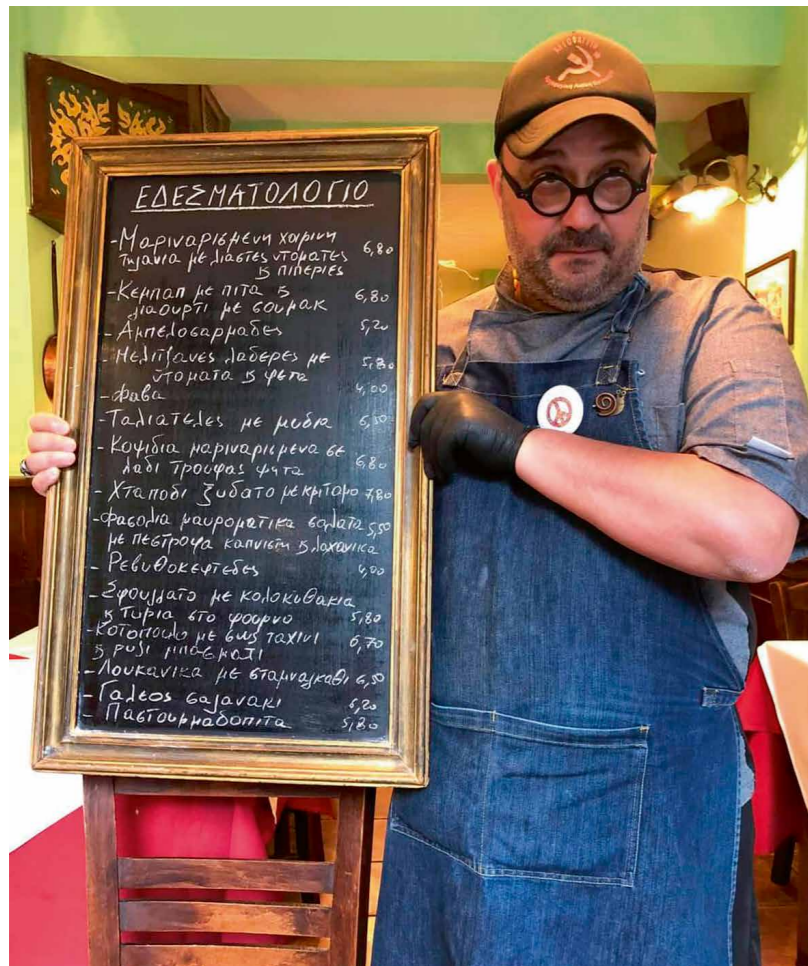 ΕΔΕΣΜΑΤΟΛΟΓΙΟ
-Μαριναρισμενη χοιρινη
τηγανια με λιαστες ντοματες 6,80
κ πιπεριες
-Κεμπαπ με πιτα κ
γιαουρτι με σουμακ 6,80
-Αμπελοσαρμαδες 5,20
-Μελιτζανες λαδερες με
ντοματα κ φετα 5,80
-Φαβα 4,00
-Ταλιατελες με μυδια 6,50
-Κοψιδια μαριναρισμενα σε
λαδι τρουφας ψητα 6,80
-Χταποδι ξυδατο με κριταμο 7,80
-Φασολια μαυροματικα σαλατα 5,50
με πεστροφα καπνιστη κ λαχανικα
-Ρεβυθοκεφτεδες 4,00
-Σφουγγατο με κολοκυθακια
κ τυρια στο φουρνο 5,80
-Κοτοπουλο με σως ταχινι 6,70
κ ρυζι μπασματι
-Λουκανικα με σταμναγκαθι 6,50
-Γαλεος σαγανακι 6,20
-Παστουρμαδοπιτα 5,80